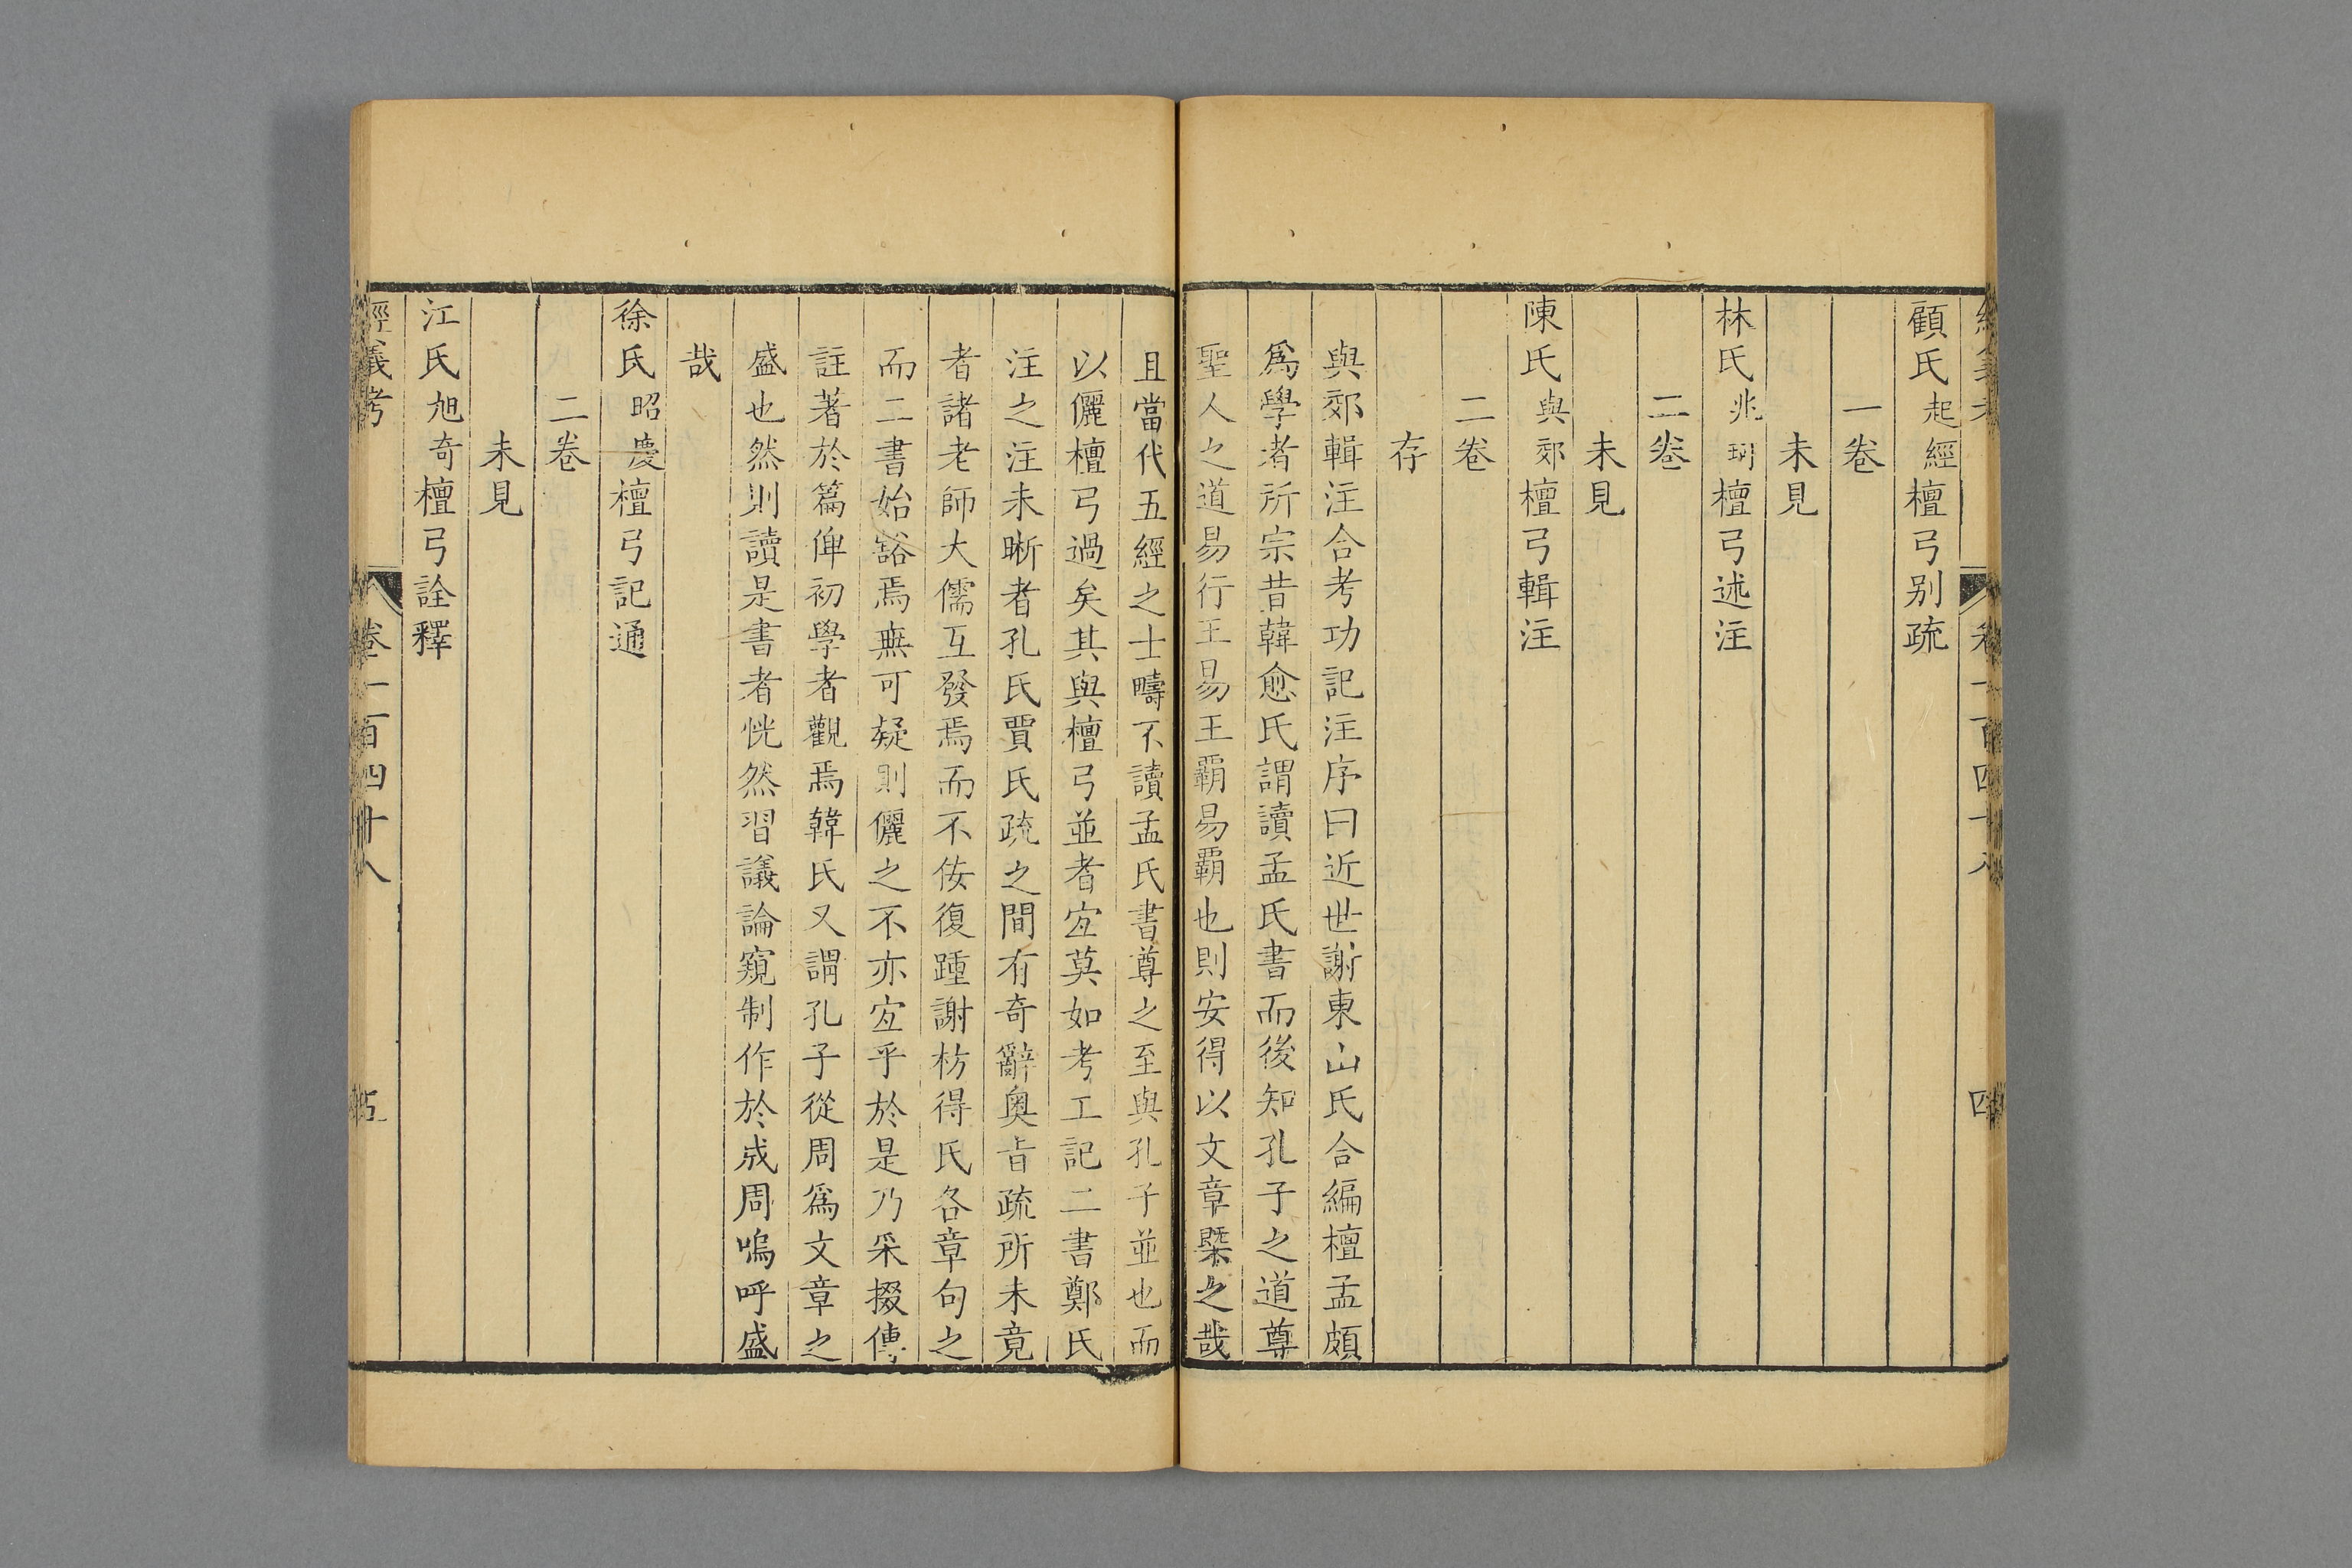 顧氏起經檀弓别疏
一卷
未見
林氏兆珂檀弓述注
二卷
未見
陳氏與郊檀弓輯注
二卷
存
與郊輯注合考功記注序曰近世謝東山氏合編檀孟頗
爲學者所宗昔韓愈氏謂讀孟氏書而後知孔子之道尊
聖人之道易行王易王覇易覇也則安得以文章槩之哉
且當代五經之士疇不讀孟氏書尊之至與孔子並也而
以儷檀弓過矣其與檀弓並者宐莫如考工記二書鄭氏
注之注未晰者孔氏賈氏疏之間有奇辭奥㫖疏所未竟
者諸老師大儒互發焉而不佞復踵謝枋得氏各章句之
而二書始豁焉無可疑則儷之不亦宐乎於是乃采掇傳
註著於篇俾初學者觀焉韓氏又謂孔子從周爲文章之
盛也然則讀是書者恍然習議論窺制作於成周嗚呼盛
哉
徐氏昭慶檀弓記通
二卷
未見
江氏旭奇檀弓詮釋
經義考
卷一百四十八
五